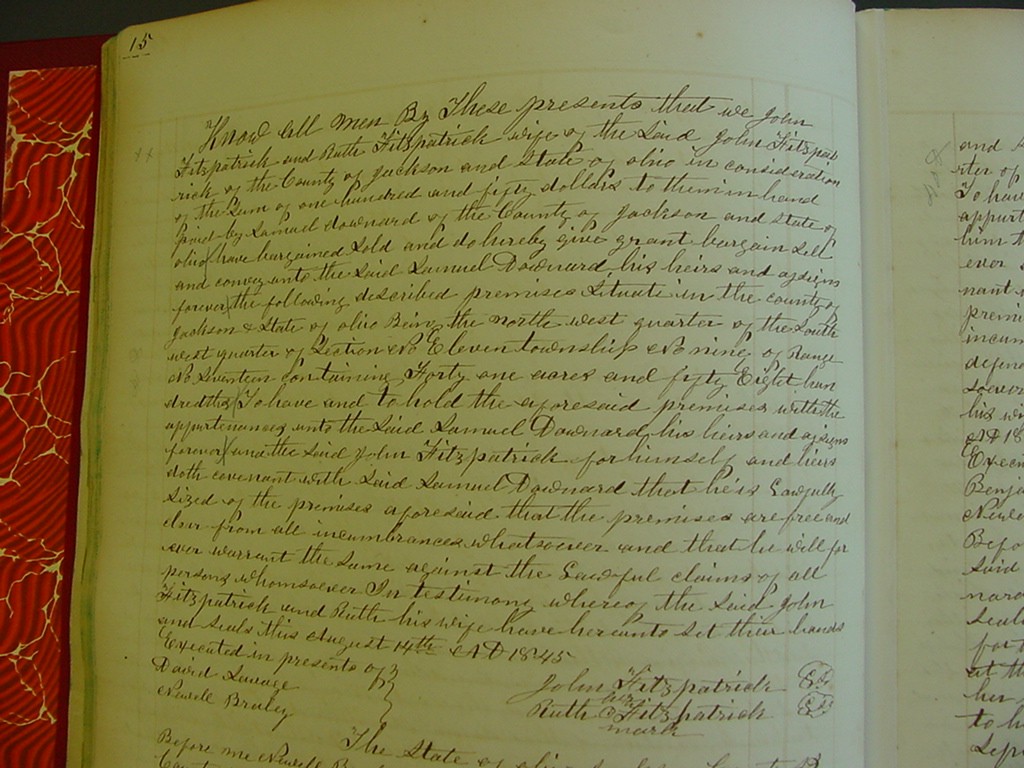 15
Know all men By These presents that we John
Fitzpatrick and Ruth Fitzpatrick wife of the Said John Fitzpat
rick of the County of Jackson and State of ohio in consideration
of the Sum of one hundred and fifty dollars to them in hand
paid by Samuel Downard of the County of Jackson and State of
ohio have bargained Sold and do hereby give grant bargain Sell
and convey unto the Said Samuel Downard his heirs and assigns
forever the following described premises Situate in the county of
Jackson & State of ohio Being the North west quarter of the South
west quarter of Section No Eleven township No nine of Range
No Seventeen Containing Forty one acres and fifty Eight hun
dredths To have and to hold the aforesaid premises with the
appurtenances unto the Said Samuel Downard his heirs and assigns
forever and the Said John Fitzpatrick for himself and heirs
doth covenant with Said Samuel Downard that he is Lawfully
Sized of the premises aforesaid that the premises are free and
clear from all incumbrances whatsoever and that he will for
ever warrant the Same against the Lawful claims of all
persons whomsoever In testimony whereof the Said John
Fitzpatrick and Ruth his wife have hereunto Set their hands
and Seals this August 14th AD 1845
Executed in presents of
David Savage
Newell Braley
John Fitzpatrick
her
Ruth Fitzpatrick
mark
The State of ohio
Before me Newell
and
To hav
appurt
him
ever
nant
premi
incum
defen
soever
his
AD 18
Execu
Benja
Newel
Befo
Said
Seal
for
at th
her
to h